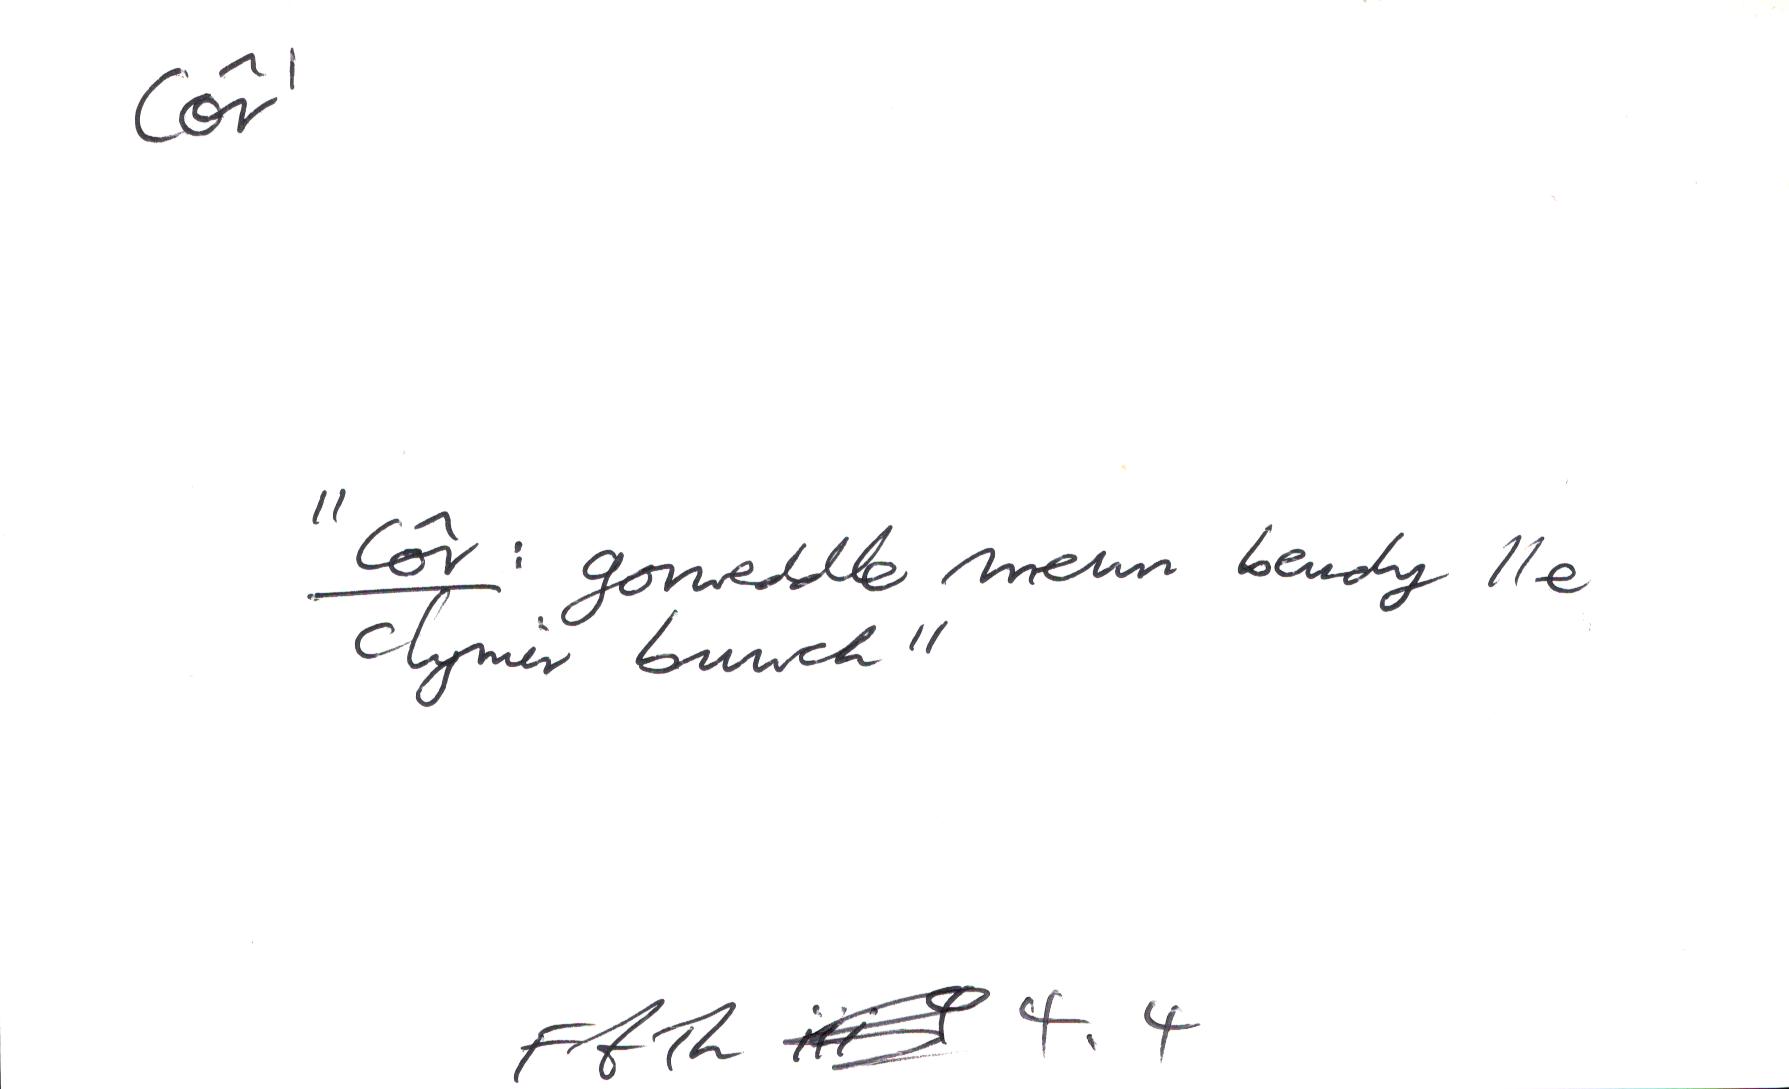 Côr¹
"Côr: gorweddle mewn beudy lle
clymir buwch"
FfTh 4.4